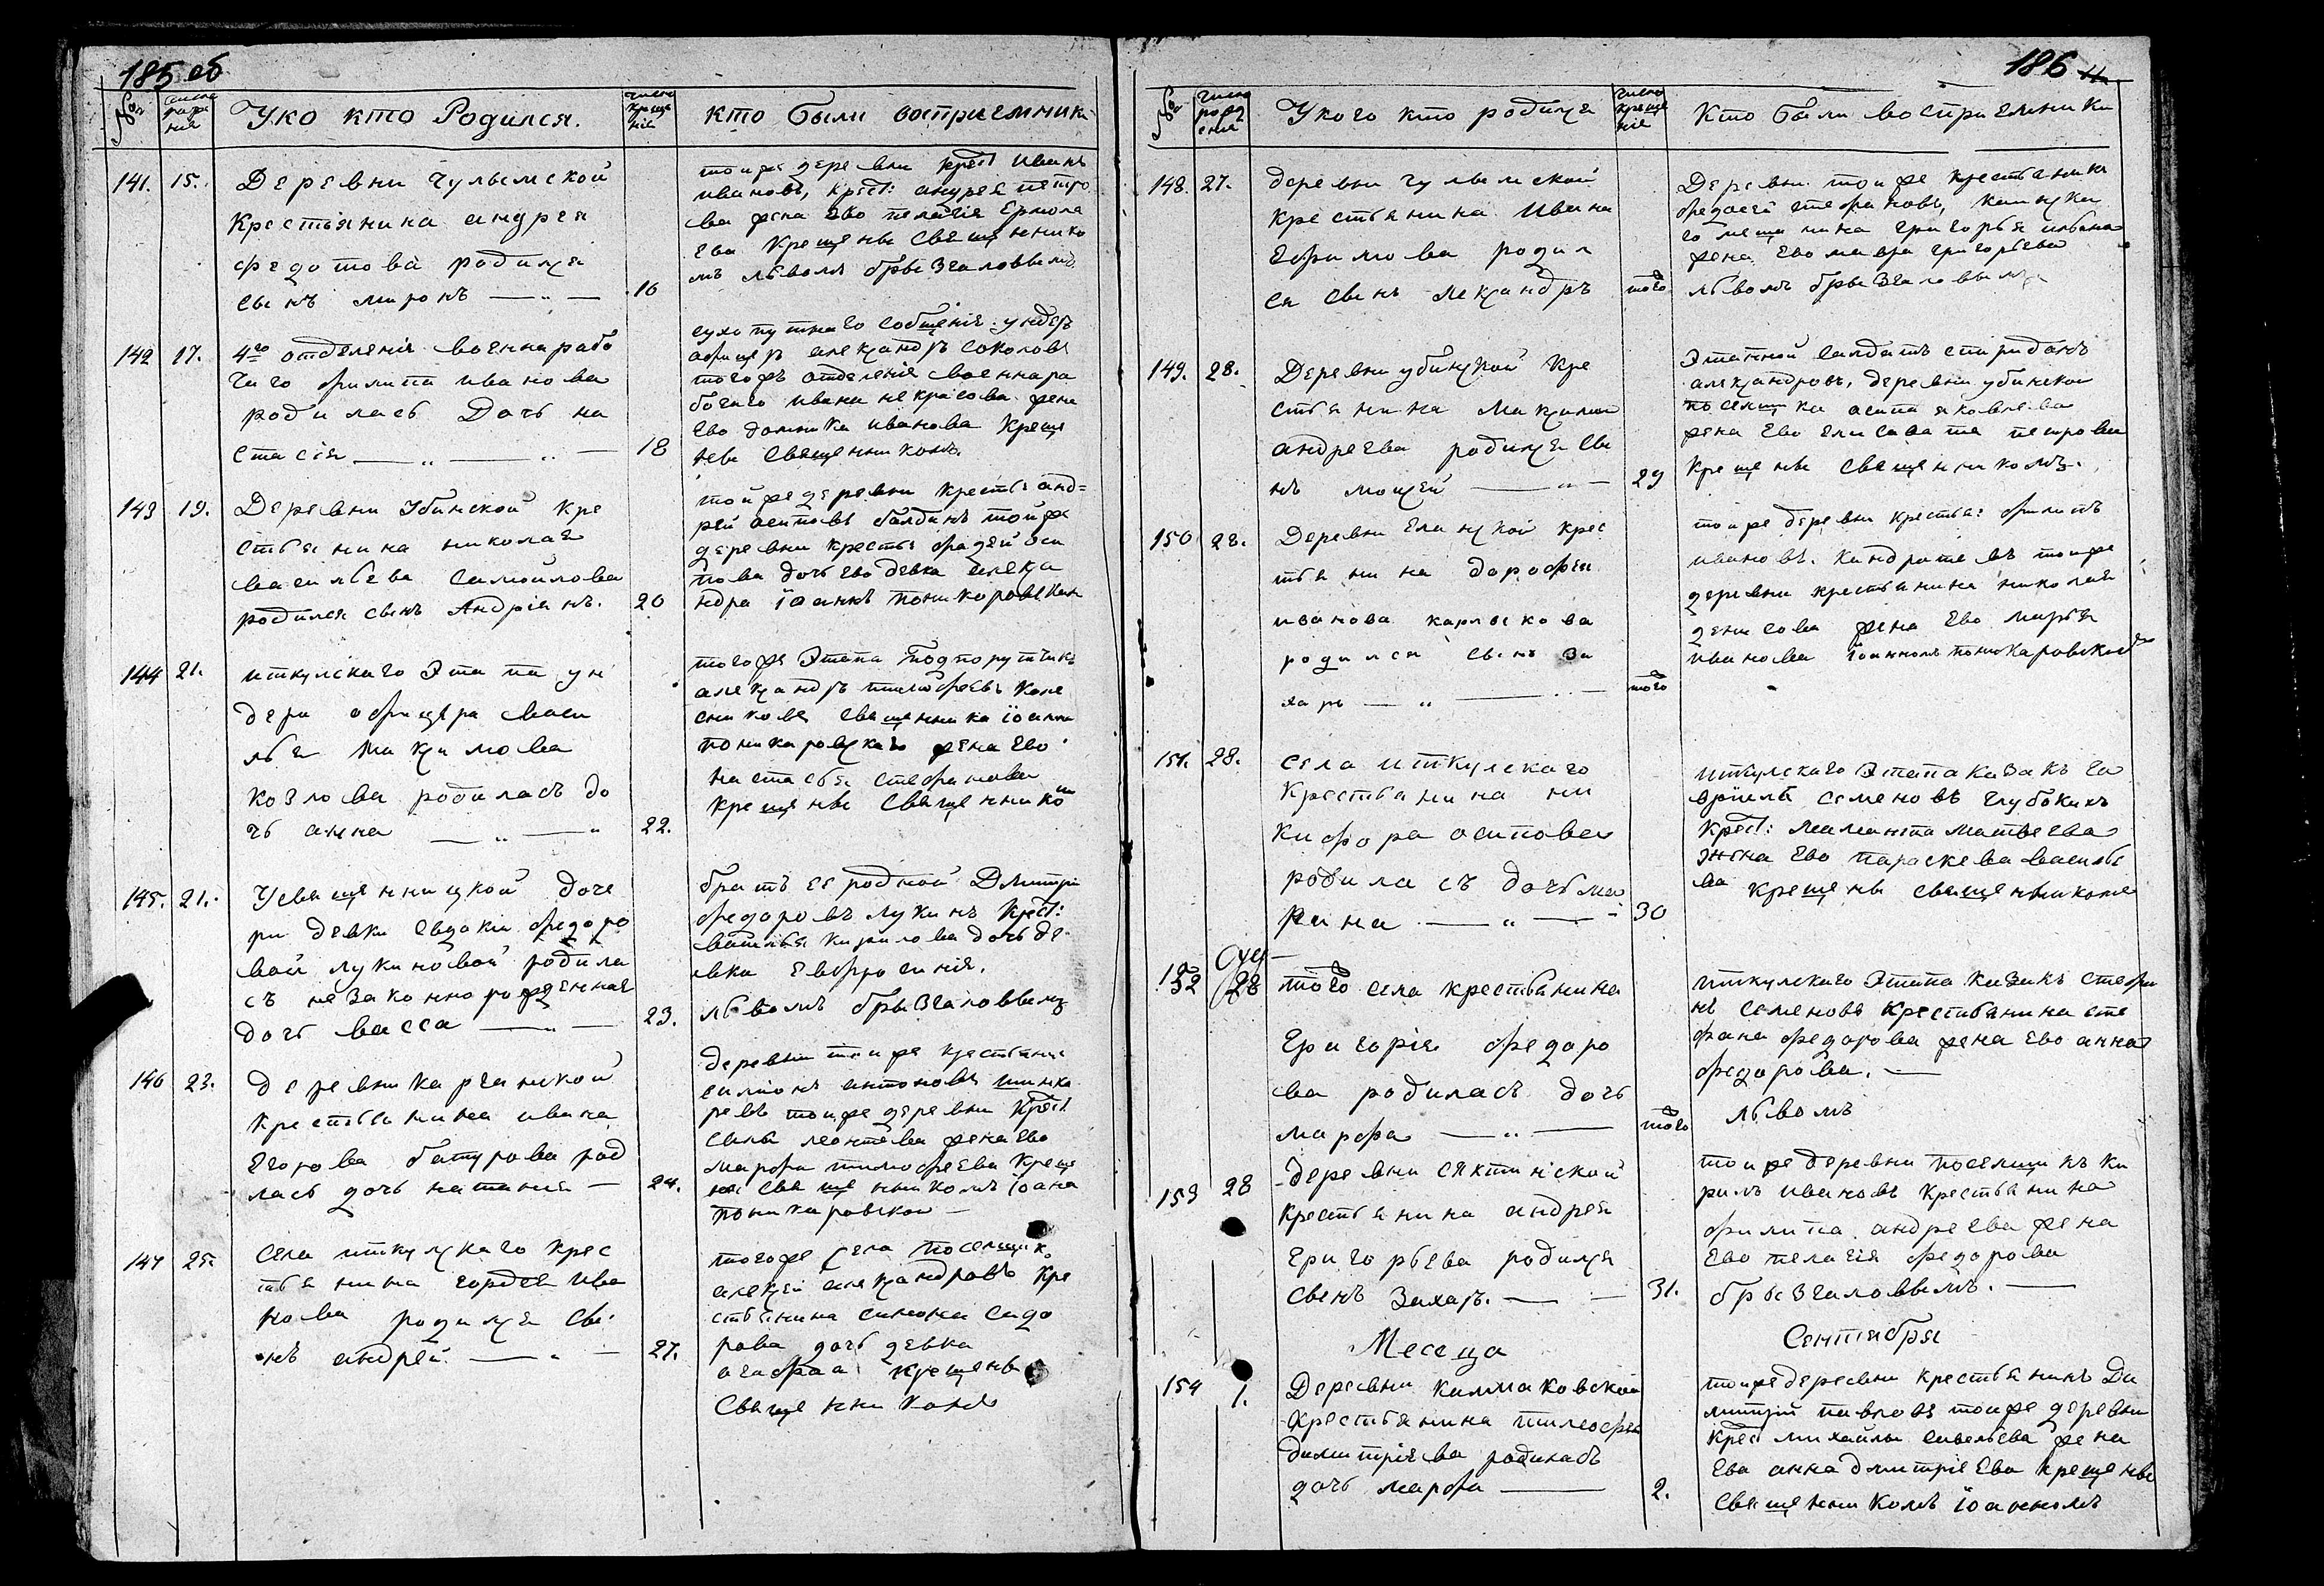 185 об
№
число рожде ния
Уко кто Родился.
число креще нiя
кто были восприемники
141. 15. Деревни Чулымской
Крестьянина андрея
федотова родился
сынъ миронъ
16
тоиже деревни крест иванъ
ивановъ, крест: андрея петро
ва жена ево пелагiя Ермола
ева крещены священнико
мъ львомъ брызгаловымъ
142 17. 4го отделенiя военнарабо
чаго филипа иванова
родиласъ Дочъ на
стасiя
18
сухопутнаго собщенiя ундеръ
афицеръ александръ соколовъ
тогожъ отделенiя военнара
бочаго ивана некрасова жена
Ево домника иванова креще
ны священникомъ.
143 19. Деревни Убинской Кре
стьянина николая
васильева Самойлова
родился сынъ Андрiянъ.
20
тойже деревни кресть: анд=
рей асиповъ балдинъ тойже
деревни кресть: фадей оси
пова дочъ ево девка алекса
ндра iоаннъ поникоровскимъ
144 21. иткулскаго Этапа ун
дера офицера васи
лья максимова
Козлова родиласъ до
чъ анна
22.
тогоже Этапа подпорутчикъ
александръ тимофеевъ коле
сниковъ священника iоанна
поникаровскаго жена ево
настасья стефанова
крещены священнико
145. 21. Усвященницкой доче
ри девки евдокiи федоро
вой лукиновой родила
съ незаконнорожденная
дочъ васса
23.
братъ ея родной Дмитрiи
федоровъ лукинъ крест:
василья кирилова дочъ де
вка евфросинiя.
львомъ брызгаловымъ
146 23. деревни каргацкой
крестьянина ивана
Егорова батурова род
ласъ дочъ наталия
24.
деревни тоиже крестьянинъ
симiонъ антоновъ шинка
ревъ тоиже деревни крест
силы леонтева жена ево
марфа тимофеева креще
на священникомъ iоана
поникаровском
147 25. Села иткулскаго крес
тьянина гордея ива
нова родился сы
нъ андрей
27.
тогоже села поселщик
алексей александровъ кре
стьянина симона сидо
рова дочъ девка
агафiа крещены
Священником
186
№
число рожд ения
Укого кто родился
число креще нiя
Кто были восприемники
148. 27. деревни чулымской
крестьянина Ивана
Ефимова родил
ся сынъ Александръ
того
Деревни тоиже крестьянинъ
федосей стефановъ, каинска
го мещанина григорья
жена Ево мавра григорьева
львомъ брызгаловымъ
149. 28. Деревни убинской Кре
стьянина Максима
андреева родился сы
нъ моисей
29
Этапной салдатъ спиридонъ
александровъ, деревни убинской
поселщика асипа яковлева
жена Ево елисавета петрова
крещены священникомъ.
150 28. Деревни Еланской крес
тьянина дорофея
иванова карлыкова
родился сынъ за
харъ
того
тоиже деревни кресть: филипъ
ивановъ. Киндратевъ тоиже
деревни крестьянина николая
денисова жена ево марья
иванова iоанномъ поникаровском
151. 28. Села иткулскаго
Крестьянина ни
кифора асипова
родиласъ дочъ ма
рина
30
иткулскаго Этапа казакъ га
врiилъ семеновъ глубокихъ
крест: маманта матвеева
жена Ево параскева василье
ва крещены священником
152 28 того села крестьянина
Григорiя федоро
ва родиласъ дочъ
марфа
того
иткулскаго Этапа казакъ стефа
нъ семеновъ крестьянина сте
фана федорова жена ево анна
федорова.
львомъ
153 28 деревни сектинской
крестьянина андрея
григорьева родился
сынъ Захаръ.
31.
тоиже деревни поселщикъ ки
рилъ ивановъ крестьянина
филипа андреева жена
Ево пелагiя федорова
брызгаловымъ.
Месеца
Сентября
154 1. Деревни Камаковской
крестьянина тимофея
димитрiева родиласъ
дочъ марфа
2.
тоиже деревни крестьянинъ Ди
митрiй павловъ тоиже деревни
крес михайлы савельева жена
Ева анна дмитрiева крещены
священникомъ iоанномъ